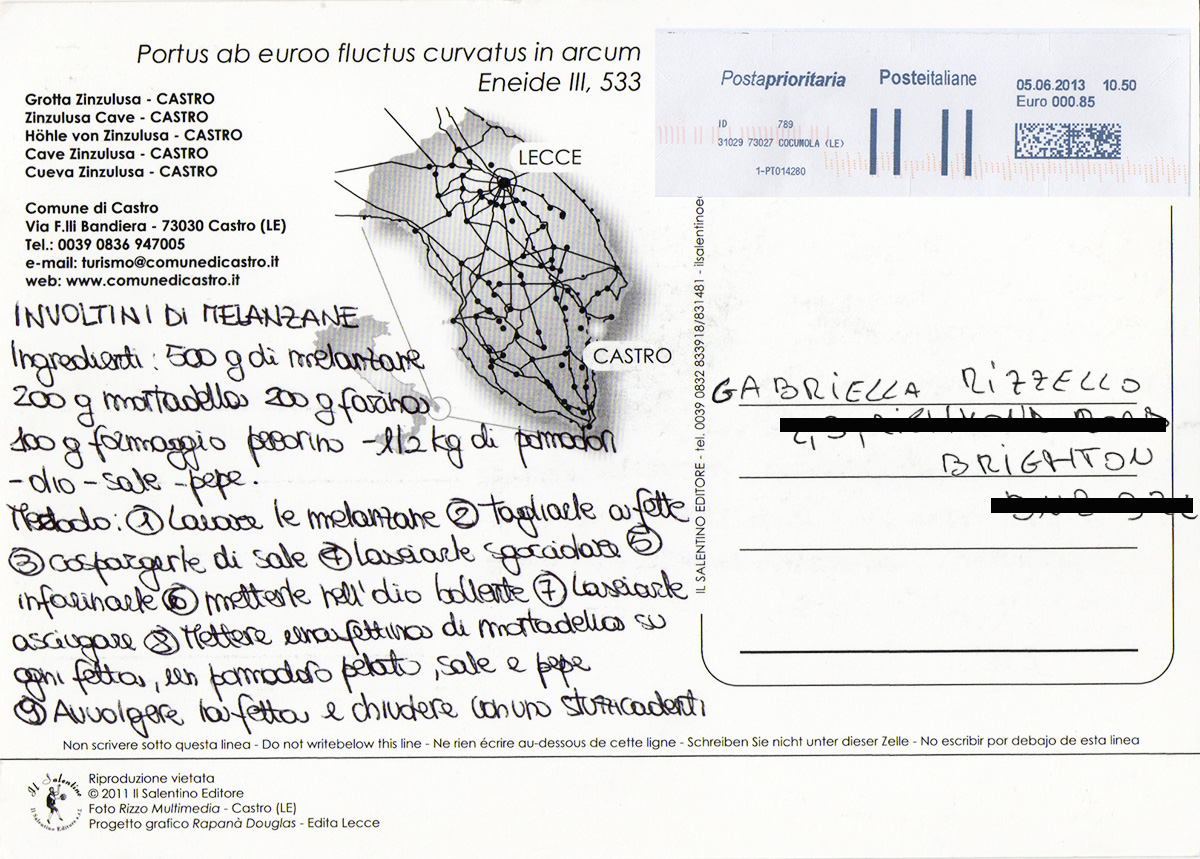 Portus ab euroo fluctus curvatus in arcum
Eneide III, 533
Grotta Zinzulusa - CASTRO
Zinzulusa Cave - CASTRO
Höhle von Zinzulusa - CASTRO
Cave Zinzulusa - CASTRO
Cueva Zinzulusa - CASTRO
Comune di Castro
Via F.lli Bandiera - 73030 Castro (LE)
Tel.: 0039 0836 947005
e-mail: turismo@comunedicastro.it
web: www.comunedicastro.it
LECCE
CASTRO
INVOLTINI DI MELANZANE
Ingredienti: 500 g di melanzane
200 g mortadella 200 g farina
100 g formaggio pecorino - 1 1/2 kg di pomodori
- olio - sale - pepe.
Metodo: ① Lavare le melanzane ② Tagliarle a fette
③ cospargerle di sale ④ Lasciarle sgocciolare ⑤
infarinarle ⑥ metterle nell'olio bollente ⑦ Lasciarle
asciugare ⑧ Mettere una fettina di mortadella su
ogni fetta, un pomodoro pelato, sale e pepe
⑨ Avvolgere la fetta e chiudere con uno stuzzicadenti
Posteprioritaria
Posteitaliane
05.06.2013 10.50
Euro 000.85
ID 789
31029 73027 COCUMOLA (LE)
1-PT014280
IL SALENTINO EDITORE - tel. 0039 0832 833918/831481 - ilsalentinoe
GABRIELLA RIZZELLO
BRIGHTON
Non scrivere sotto questa linea - Do not writebelow this line - Ne rien écrire au-dessous de cette ligne - Schreiben Sie nicht unter dieser Zelle - No escribir por debajo de esta linea
Il Salentino
Il Salentino Editore s.r.l.
Riproduzione vietata
© 2011 Il Salentino Editore
Foto Rizzo Multimedia - Castro (LE)
Progetto grafico Rapanà Douglas - Edita Lecce